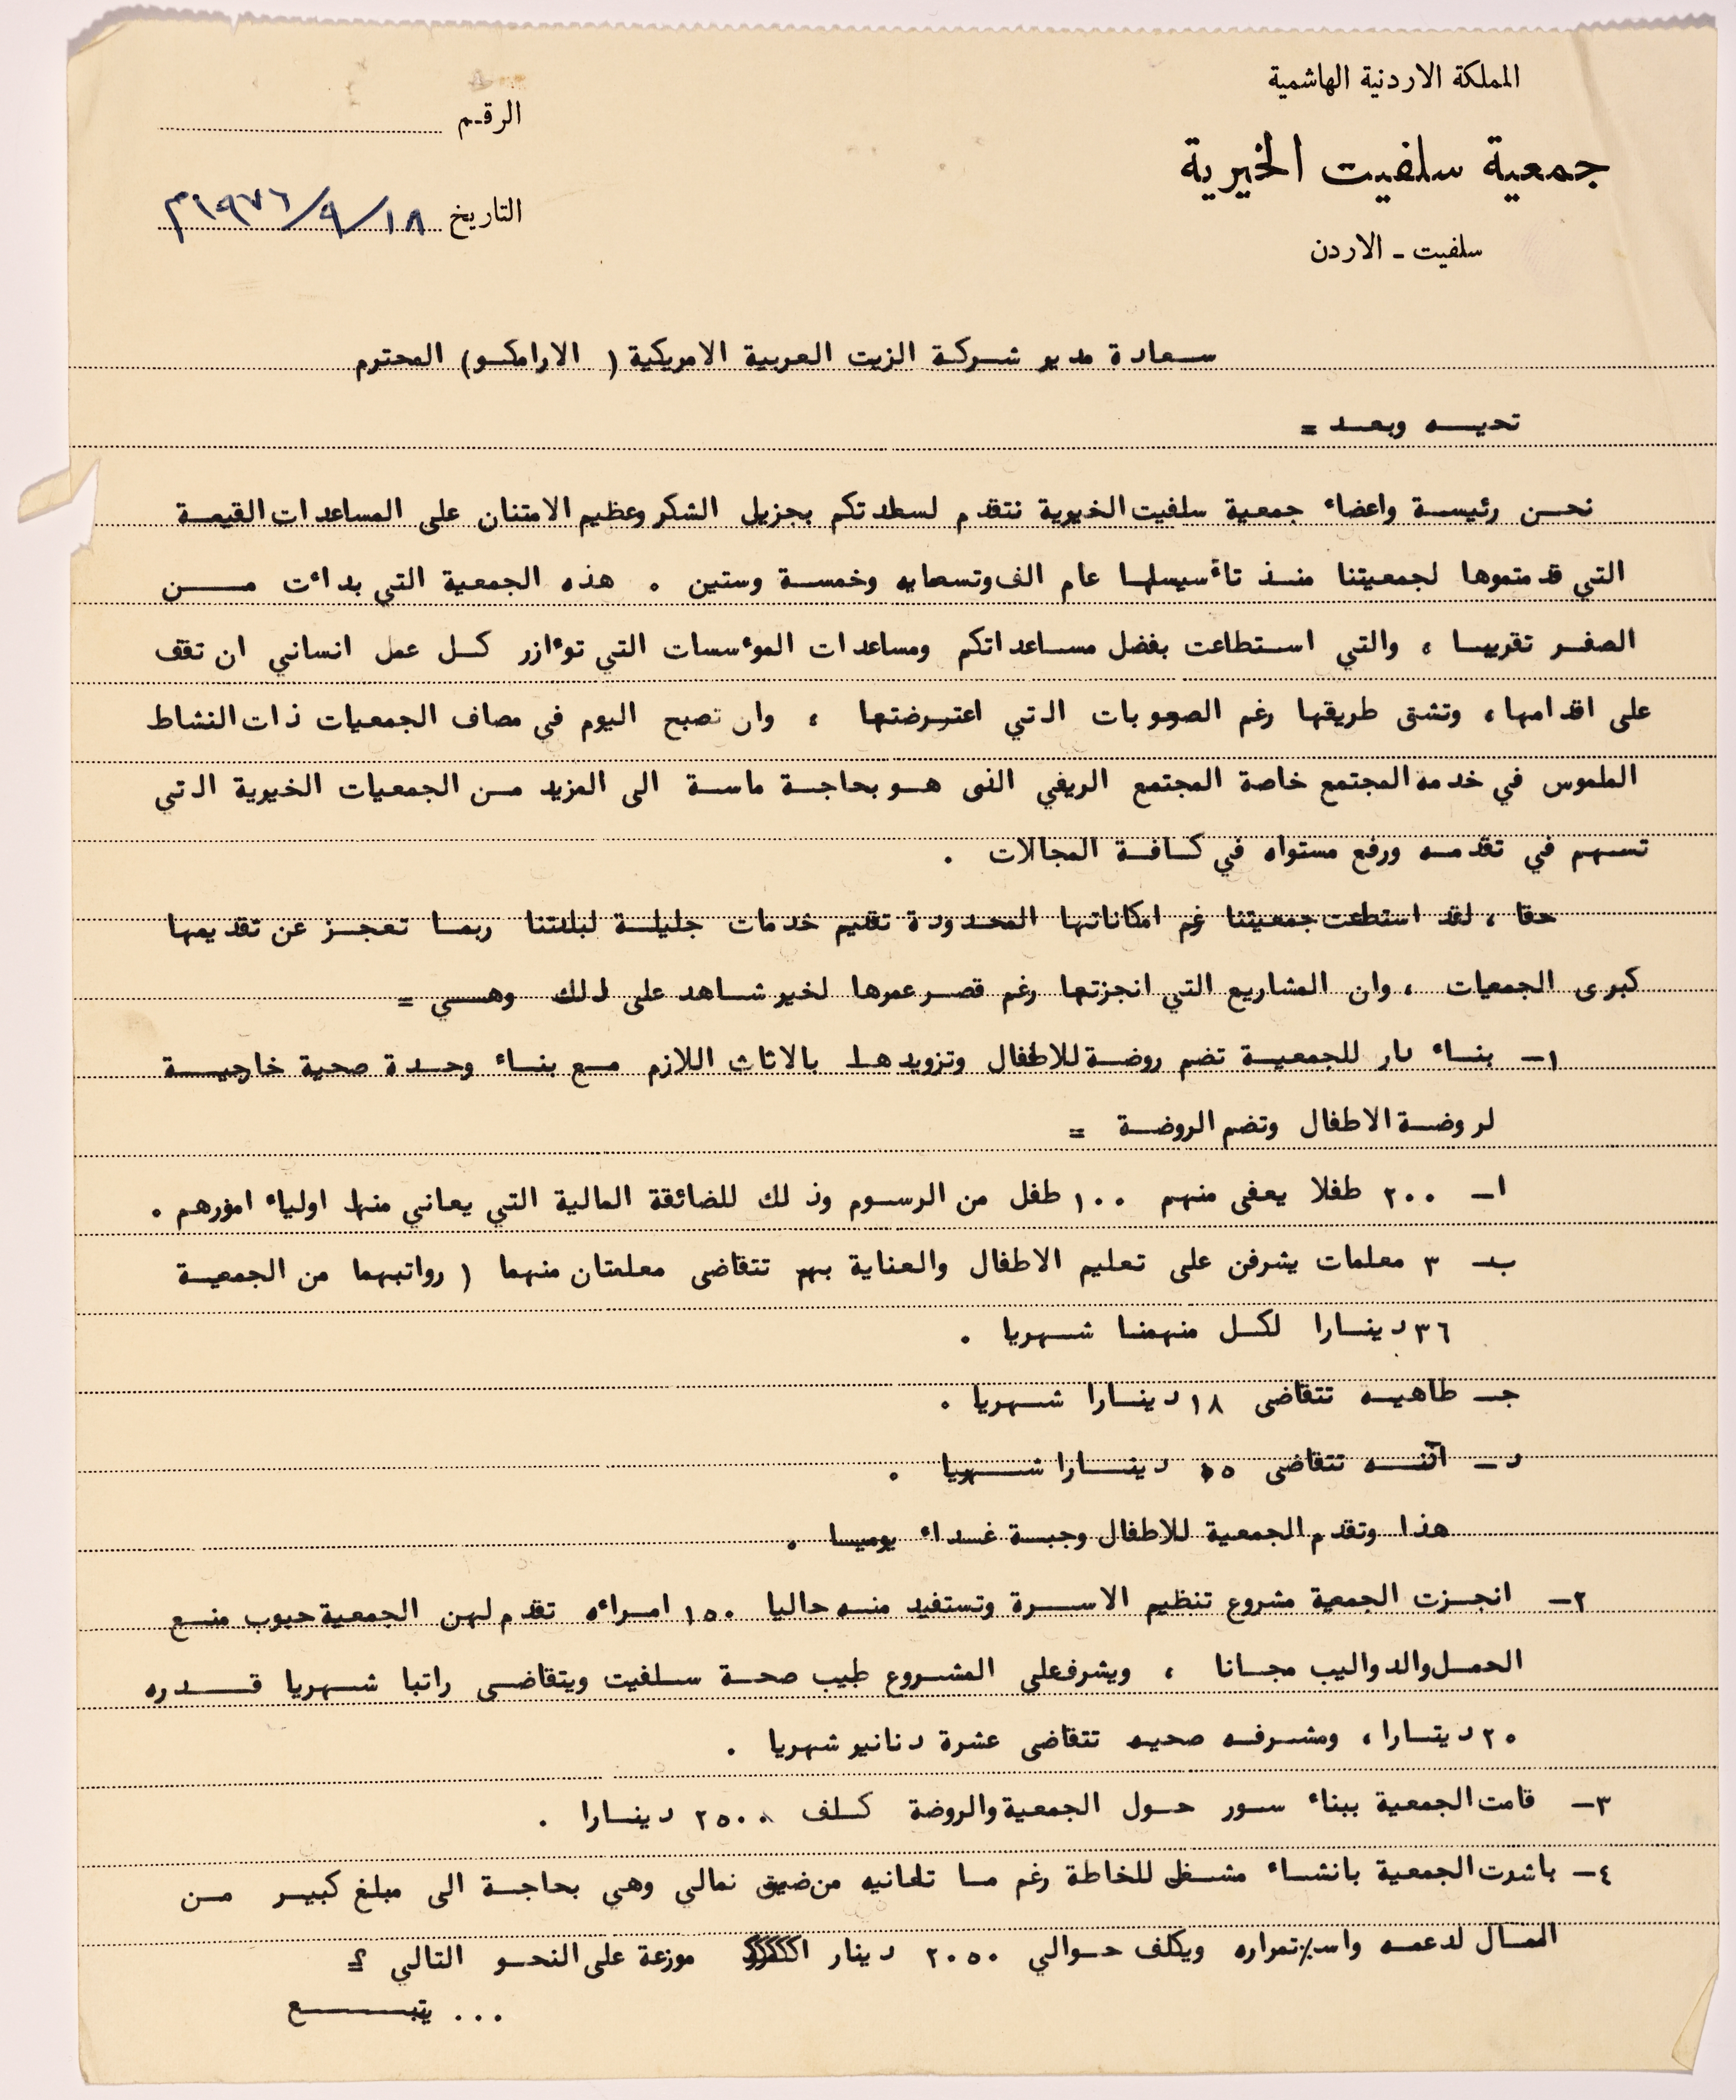 المملكة الاردنية الهاشمية
جمعية سلفيت الخيرية
سلفيت - الاردن
الرقم
التاريخ ١٨/٩/١٩٧٦م
سعادة مدير شركة الزيت العربية الامريكية ( الارامكو) المحترم
تحيه وبعد =
نحن رئيسة واعضاء جمعية سلفيت الخيرية نتقدم لسعادتكم بجزيل الشكر وعظيم الامتنان على المساعدات القيمة
التي قدمتموها لجمعيتنا منذ تأسيسها عام الف وتسعمايه وخمسة وستين . هذه الجمعية التي بداءت من
الصفر تقريبا ، والتي استطاعت بفضل مساعداتكم ومساعدات الموءسسات التي توءازر كل عمل انساني ان تقف
على اقدامها ، وتشق طريقها رغم الصعوبات التي اعترضتها ، وان تصبح اليوم في مصاف الجمعيات ذات النشاط
الملموس في خدمه المجتمع خاصة المجتمع الريفي الذى هو بحاجة ماسة الى المزيد من الجمعيات الخيرية التي
تسهم في تقدمه ورفع مستواه في كافة المجالات .
حقا ، لقد استطعت جمعيتنا غم امكاناتها المحدودة تقديم خدمات جليلة لبلدتنا ربما تعجز عن تقديمها
كبرى الجمعيات ، وان المشاريع التي انجزتها رغم قصر عمرها لخير شاهد على ذلك وهي =
١- بناء دار للجمعية تضم روضة للاطفال وتزويدها بالاثاث اللازم مع بناء وحدة صحية خارجية
لروضة الاطفال وتضم الروضة =
ا- ٢٠٠ طفلا يعفى منهم ١٠٠ طفل من الرسوم وذلك للضائقة المالية التي يعاني منها اولياء امورهم .
ب- ٣ معلمات يشرفن على تعليم الاطفال والعناية بهم تتقاضى معلمتان منهما ( رواتبهما من الجمعية
٣٦ دينارا لكل منهمنا شهريا .
ج- طاهيه تتقاضى ١٨ دينارا شهريا .
د- آذنه تتقاضى دينارا شهريا .
هذا وتقدم الجمعية للاطفال وجبة غداء يوميا .
٢- انجزت الجمعية مشروع تنظيم الاسرة وتستفيد منه حاليا ١٥٠ امراءه تقدم لهن الجمعية حبوب منع
الحمل والدواليب مجانا ، ويشرف على المشروع طبيب صحة سلفيت ويتقاضى راتبا شهريا قدره
٢٠ دينارا ، ومشرفه صحيه تتقاضى عشرة دنانير شهريا .
٣- قامت الجمعية ببناء سور حول الجمعية والروضة كلف ٢٥٠٠ دينارا .
٤- باشرت الجمعية بانشاء مشغل للخاطة رغم ما تلعانيه من ضيق نمالي وهي بحاجة الى مبلغ كبير من
المال لدعمه واستمراره ويكلف حوالي ٢٠٥٠ دينار موزعة على النحو التالي =
... يتبع